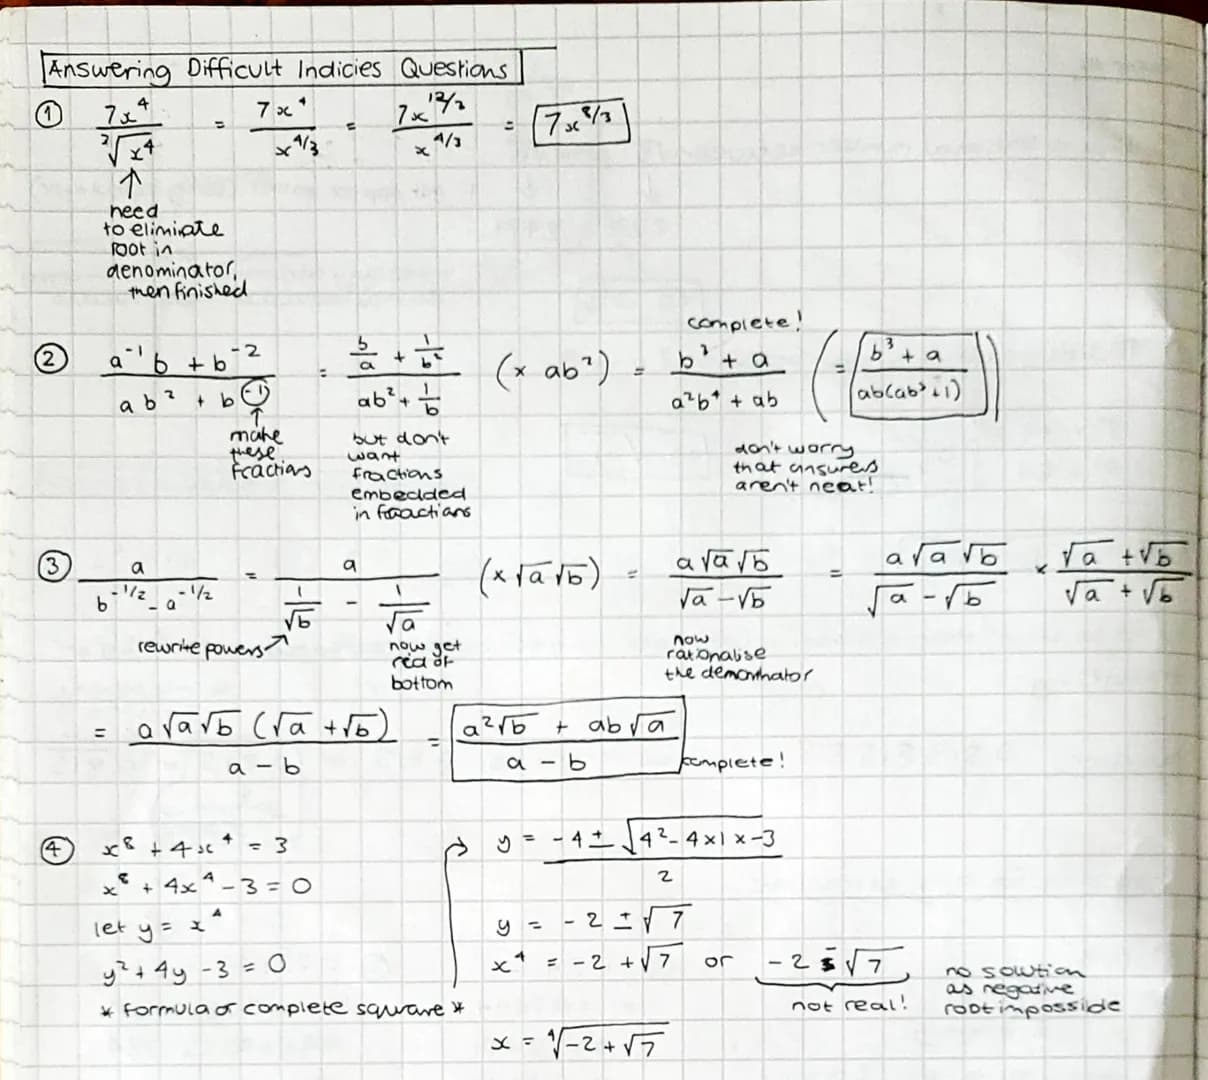 Answering Difficult Indicies Questions
① 7x⁴ / ³√x⁴ = 7x⁴ / x^4/3 = 7x^12/3 / x^4/3 = 7x^8/3
↑
need
to elimiate
root in
denominator,
then finished
complete!
② a⁻¹b + b⁻² / ab² + b⁻¹ = b/a + 1/b² / ab² + 1/b (× ab²) = b³ + a / a²b⁴ + ab (= b³ + a / ab(ab³+1))
↑
make
these
fractions
but don't
want
fractions
embedded
in fraactians
don't worry
that answers
aren't neat!
③ a / b^-1/2 - a^-1/2 = a / 1/√b - 1/√a (× √a √b) = a√a√b / √a - √b = a√a√b / √a - √b × √a + √b / √a + √b
rewrite powers
now get
rid of
bottom
now
rationalise
the demoninator
= a√a√b (√a + √b) / a - b = a²√b + ab√a / a - b complete!
④ x⁸ + 4x⁴ = 3
x⁸ + 4x⁴ - 3 = 0
let y = x⁴
y² + 4y - 3 = 0
* formula or complete square *
→ y = -4 ± √4² - 4×1×-3 / 2
y = -2 ± √7
x⁴ = -2 + √7 or -2 - √7
not real!
no solution
as negative
root impossible
x = ⁴√-2 + √7